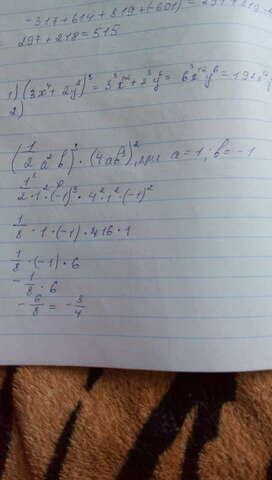 -317+614+819+(-601)=297+218
= 297+218=515
1) (3x⁴+2y²)³=3³x¹²+2³y⁶=6³x¹²y⁶=
2)
(1/2 a²b)³·(4ab³)², при a=1; b=-1
1³/2·1²·(-1)³·4²·1²·(-1)²
1/8·1·(-1)·416·1
1/8·(-1)·6
-1/8·6
-6/8=-3/4